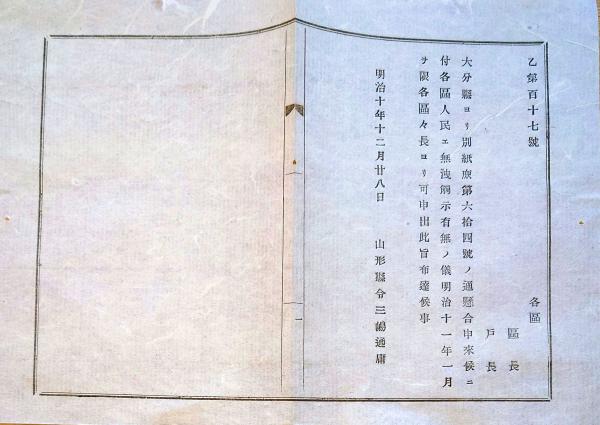 乙第百十七號
各區 區長
戸長
大分縣ヨリ別紙庶第六拾四號ノ通懸合申來候ニ
付各區人民エ無洩觸示有無ノ儀明治十一年一月
ヲ限各區々長ヨリ可申出此旨布達候事
明治十年十二月廿八日
山形縣令三島通庸
一